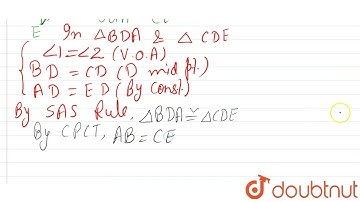 E In △BDA & △ CDE
∠1=∠2 (V.O.A)
BD = CD (D mid pt.)
AD = ED (By const.)
By SAS Rule, △BDA≅△CDE
By CPCT, AB=CE
doubtnut